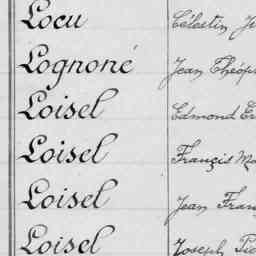 Locu Célestin
Lognoné Jean Théop
Loisel Edmond
Loisel Françis
Loisel Jean Fran
Loisel Joseph